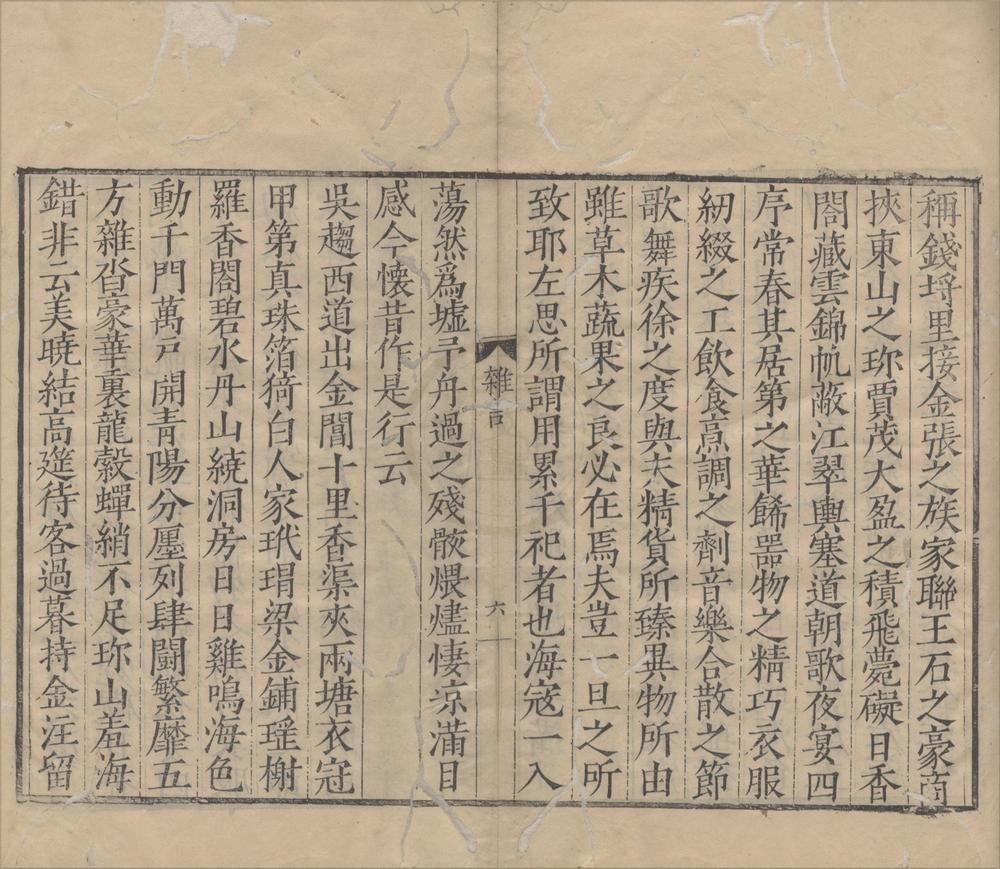 稱錢埒里接金張之族家聯王石之豪商
挾東山之珎賈茂大盈之積飛甍礙日香
閤藏雲錦帆蔽江翠輿塞道朝歌夜宴四
序常春其居第之華餙器物之精巧衣服
紉綴之工飲食烹調之劑音樂合散之節
歌舞疾徐之度與夫精貨所臻異物所由
雖草木蔬果之良必在焉夫豈一旦之所
致耶左思所謂用累千祀者也海寇一入
雜言
六
蕩然爲墟予舟過之殘骸煨燼悽凉滿目
感今懷昔作是行云
吳趨西道出金閶十里香渠夾兩塘衣冠
甲第真珠箔猗白人家玳瑁梁金鋪瑶榭
羅香閣碧水丹山繞洞房日日雞鳴海色
動千門萬戸開青陽分㕓列肆鬭繁靡五
方雜沓豪華裏龍縠蟬綃不足珎山羞海
錯非云美曉結高筵待客過暮持金注留